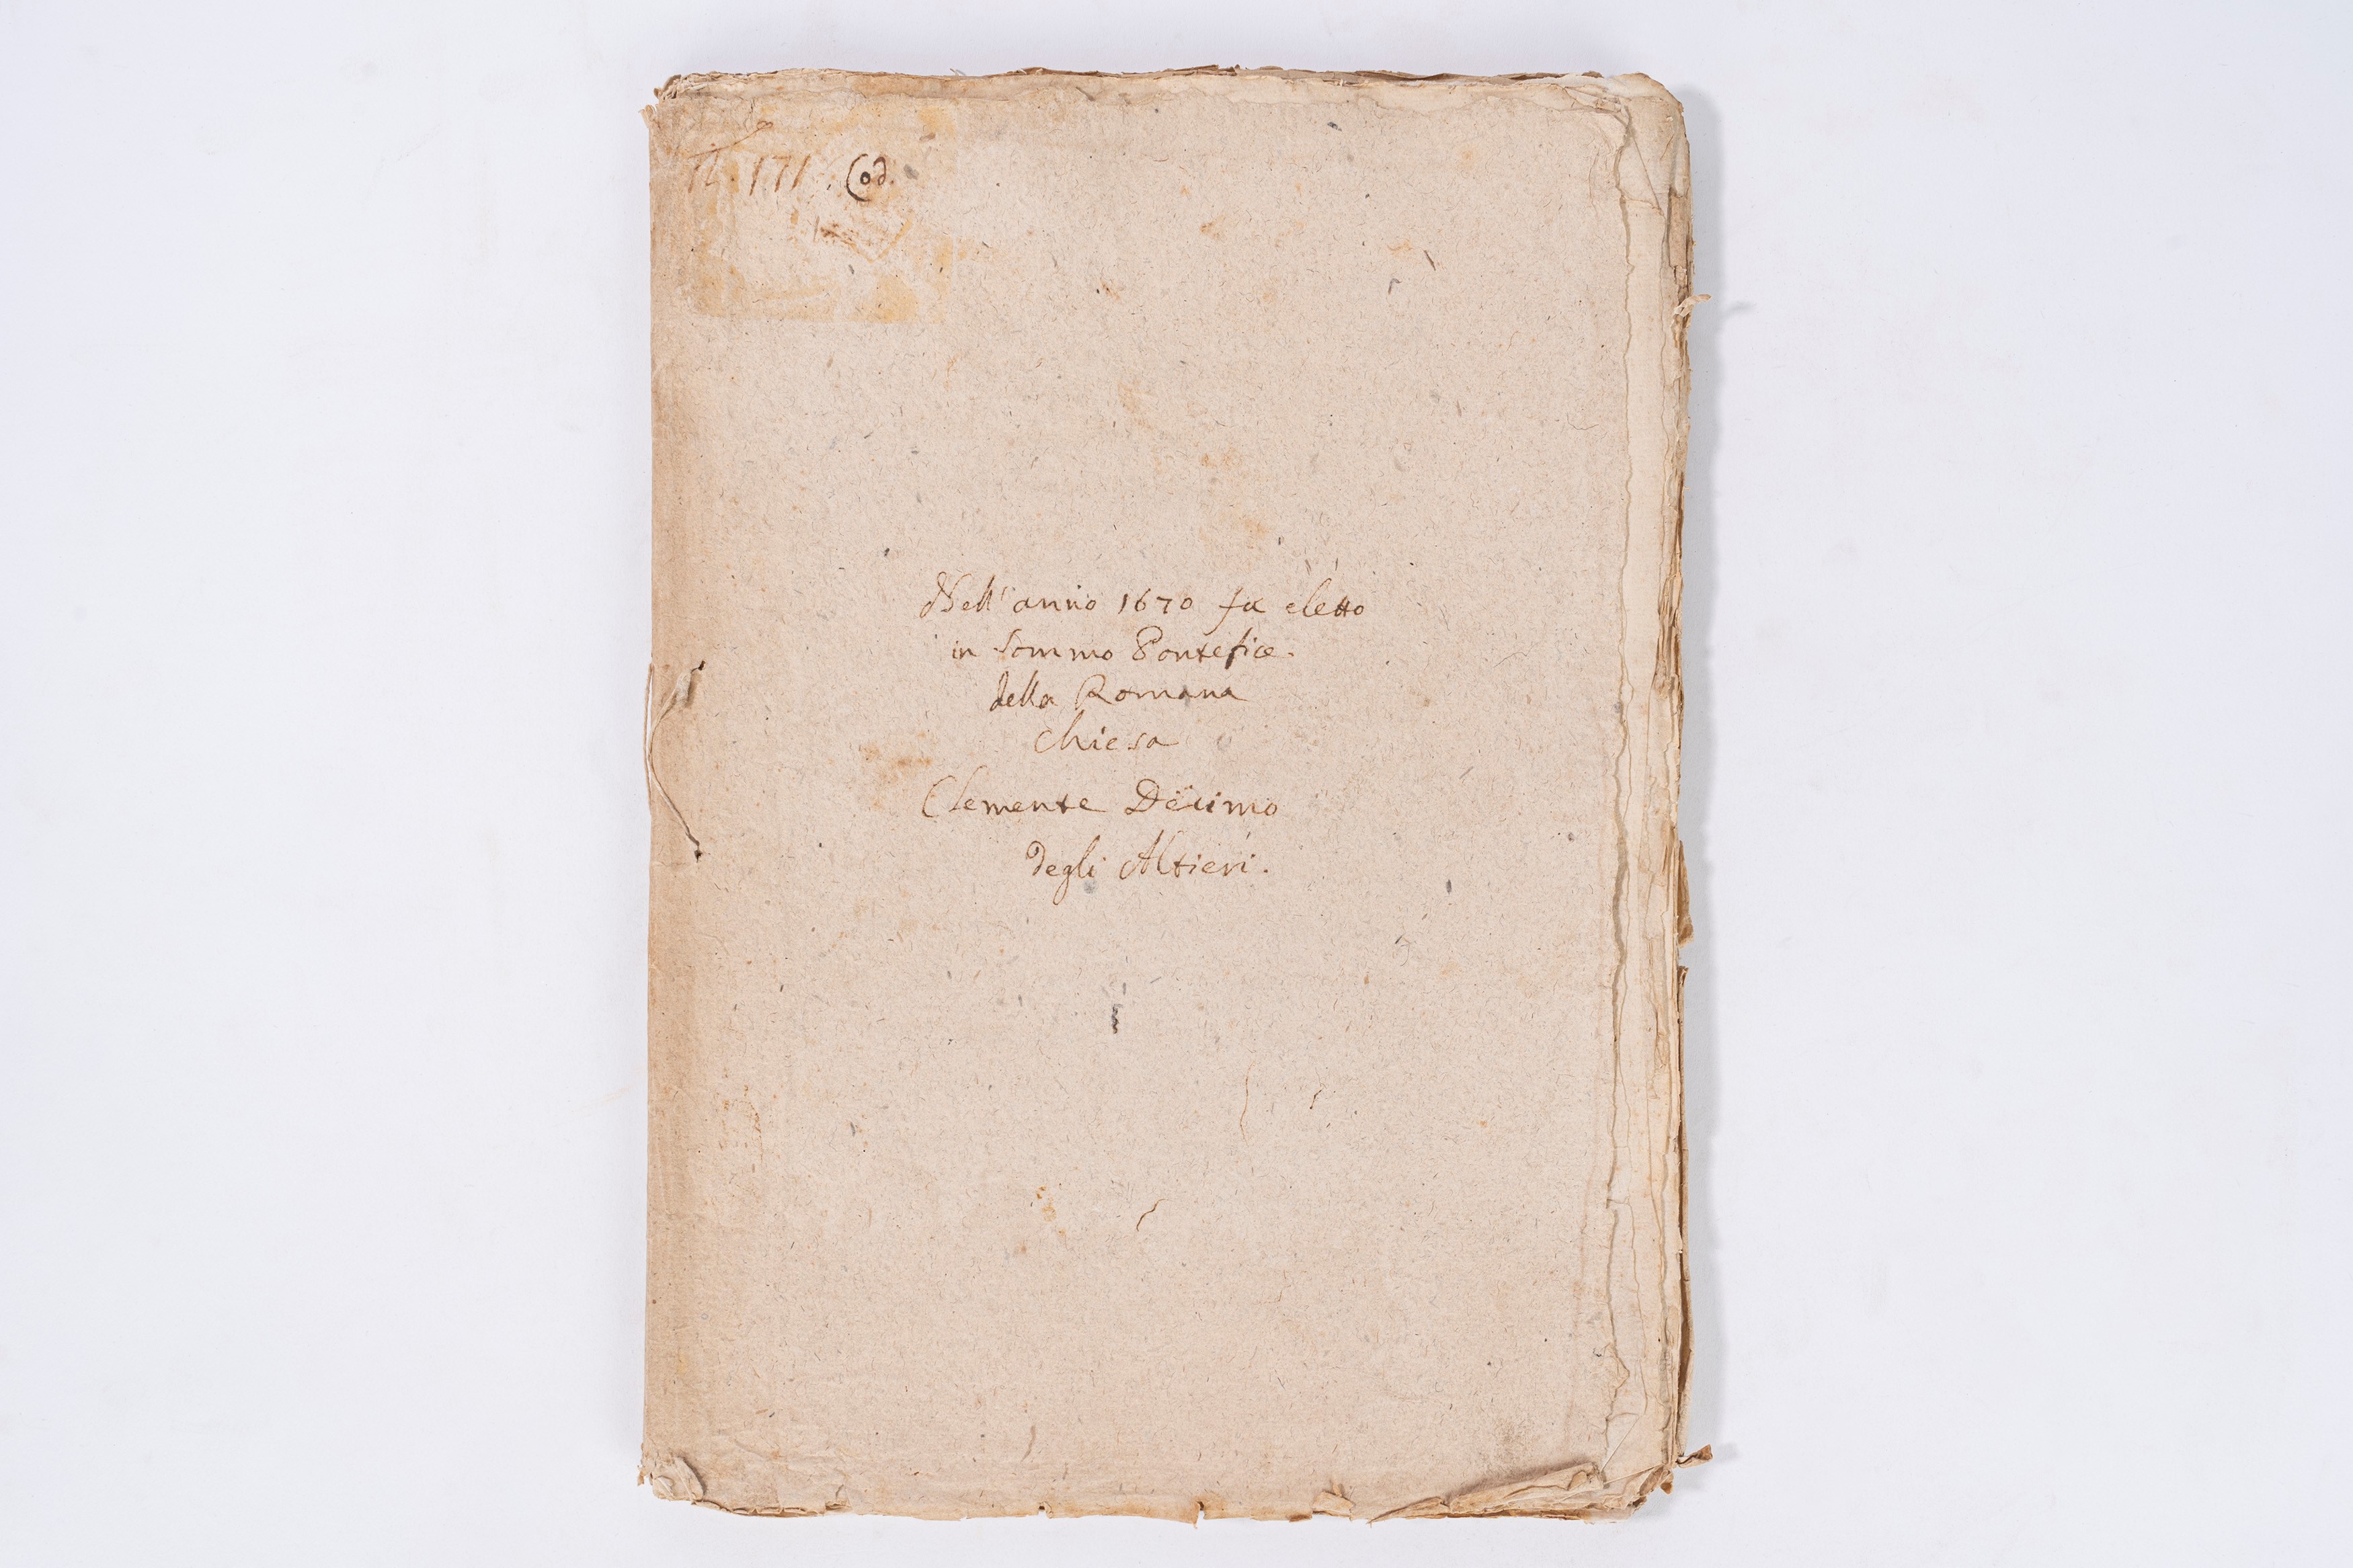 171. Cod.
Nell' anno 1670 fu eletto
in Sommo Pontefice
della Romana
Chiesa
Clemente Decimo
degli Altieri.